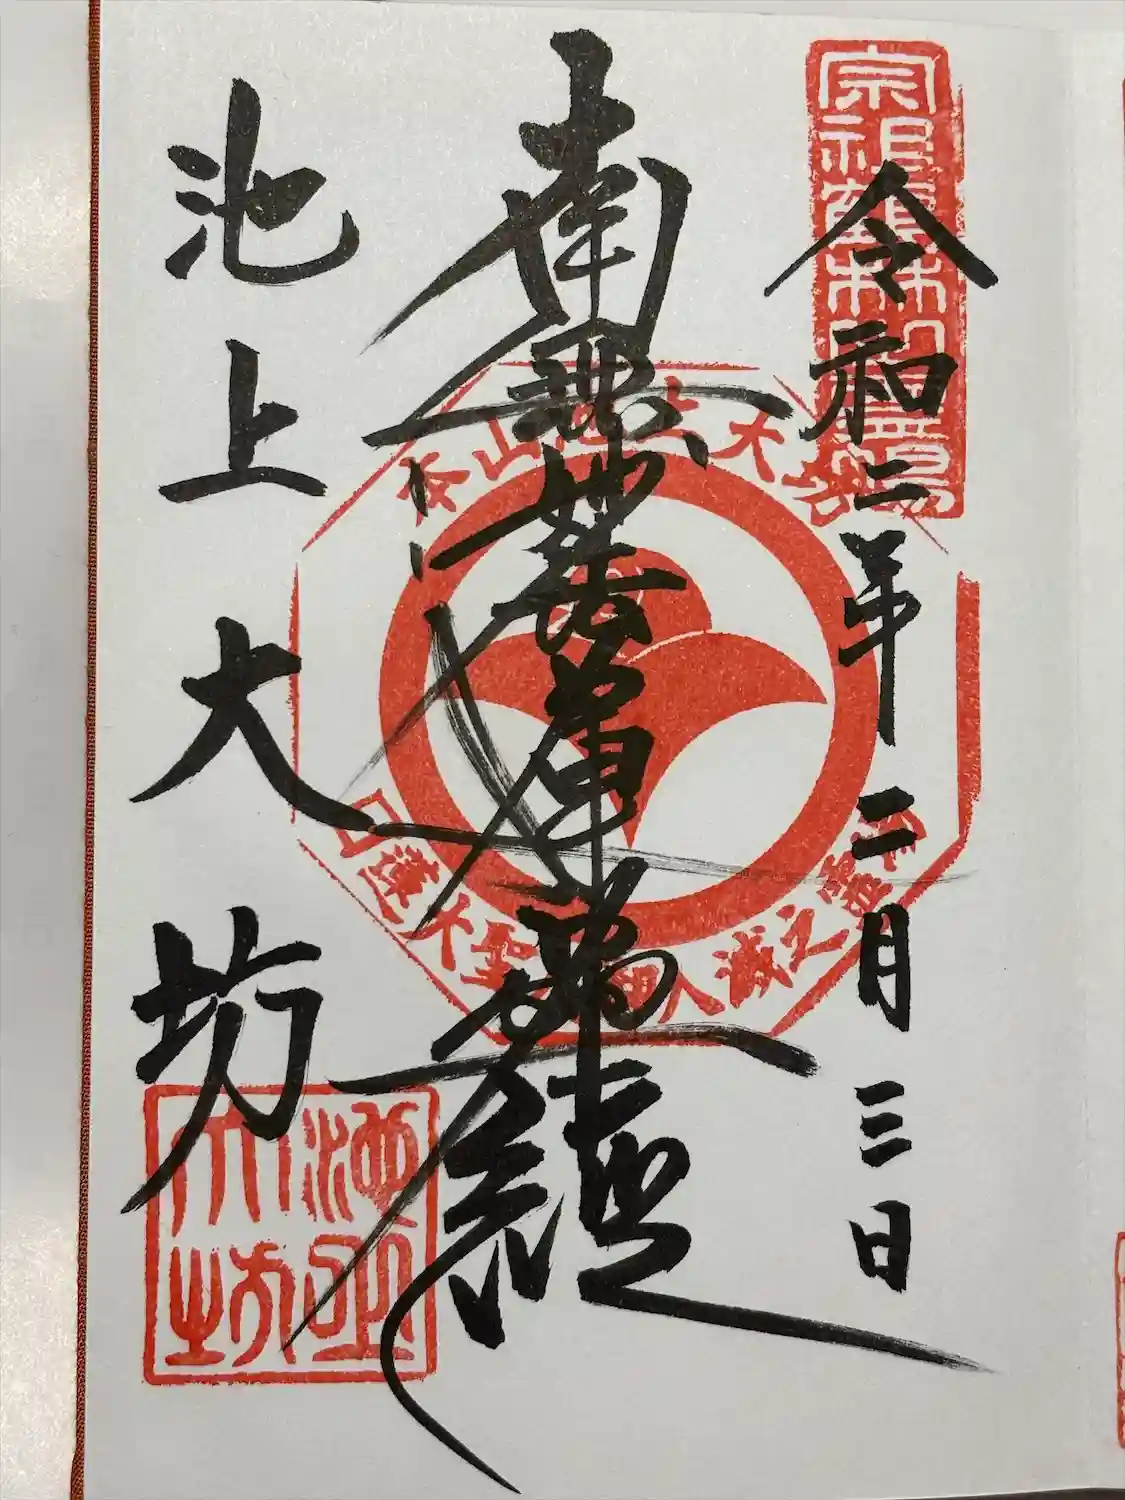 令和二年二月三日
南無妙法蓮華経
池上大坊
本山池上大坊
日蓮大聖人入滅之霊場
池上大坊